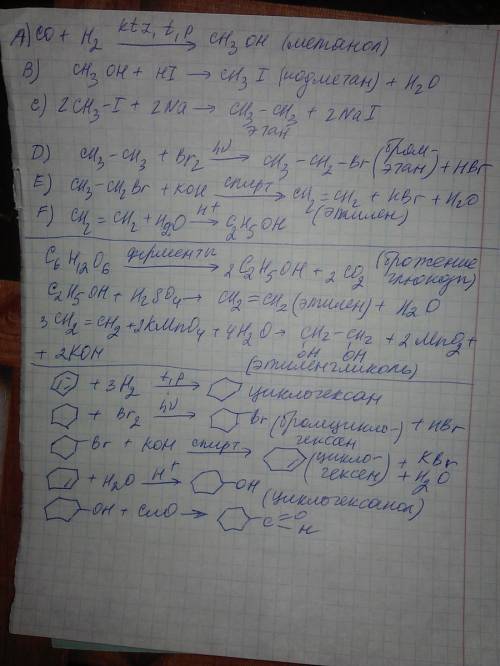 A) CO + H₂ kt z, t, p → CH₃OH (метанол)
B) CH₃OH + HI → CH₃I (иодметан) + H₂O
C) 2CH₃-I + 2Na → CH₃-CH₃ + 2NaI
этан
D) CH₃-CH₃ + Br₂ hν → CH₃-CH₂-Br (бром-этан) + HBr
E) CH₃-CH₂Br + KOH спирт → CH₂=CH₂ + KBr + H₂O
(этилен)
F) CH₂=CH₂ + H₂O H⁺ → C₂H₅OH
C₆H₁₂O₆ ферменты → 2C₂H₅OH + 2CO₂ (брожение глюкозы)
C₂H₅OH + H₂SO₄ → CH₂=CH₂ (этилен) + H₂O
3CH₂=CH₂ + 2KMnO₄ + 4H₂O → CH₂-CH₂ + 2MnO₂ +
OH OH
+ 2KOH (этиленгликоль)
+ 3H₂ t, p → циклогексан
+ Br₂ hν → Br (бромцикло-гексан) + HBr
Br + KOH спирт → (цикло-гексен) + KBr + H₂O
+ H₂O H⁺ → OH (циклогексанол)
OH + CuO → C=O
H